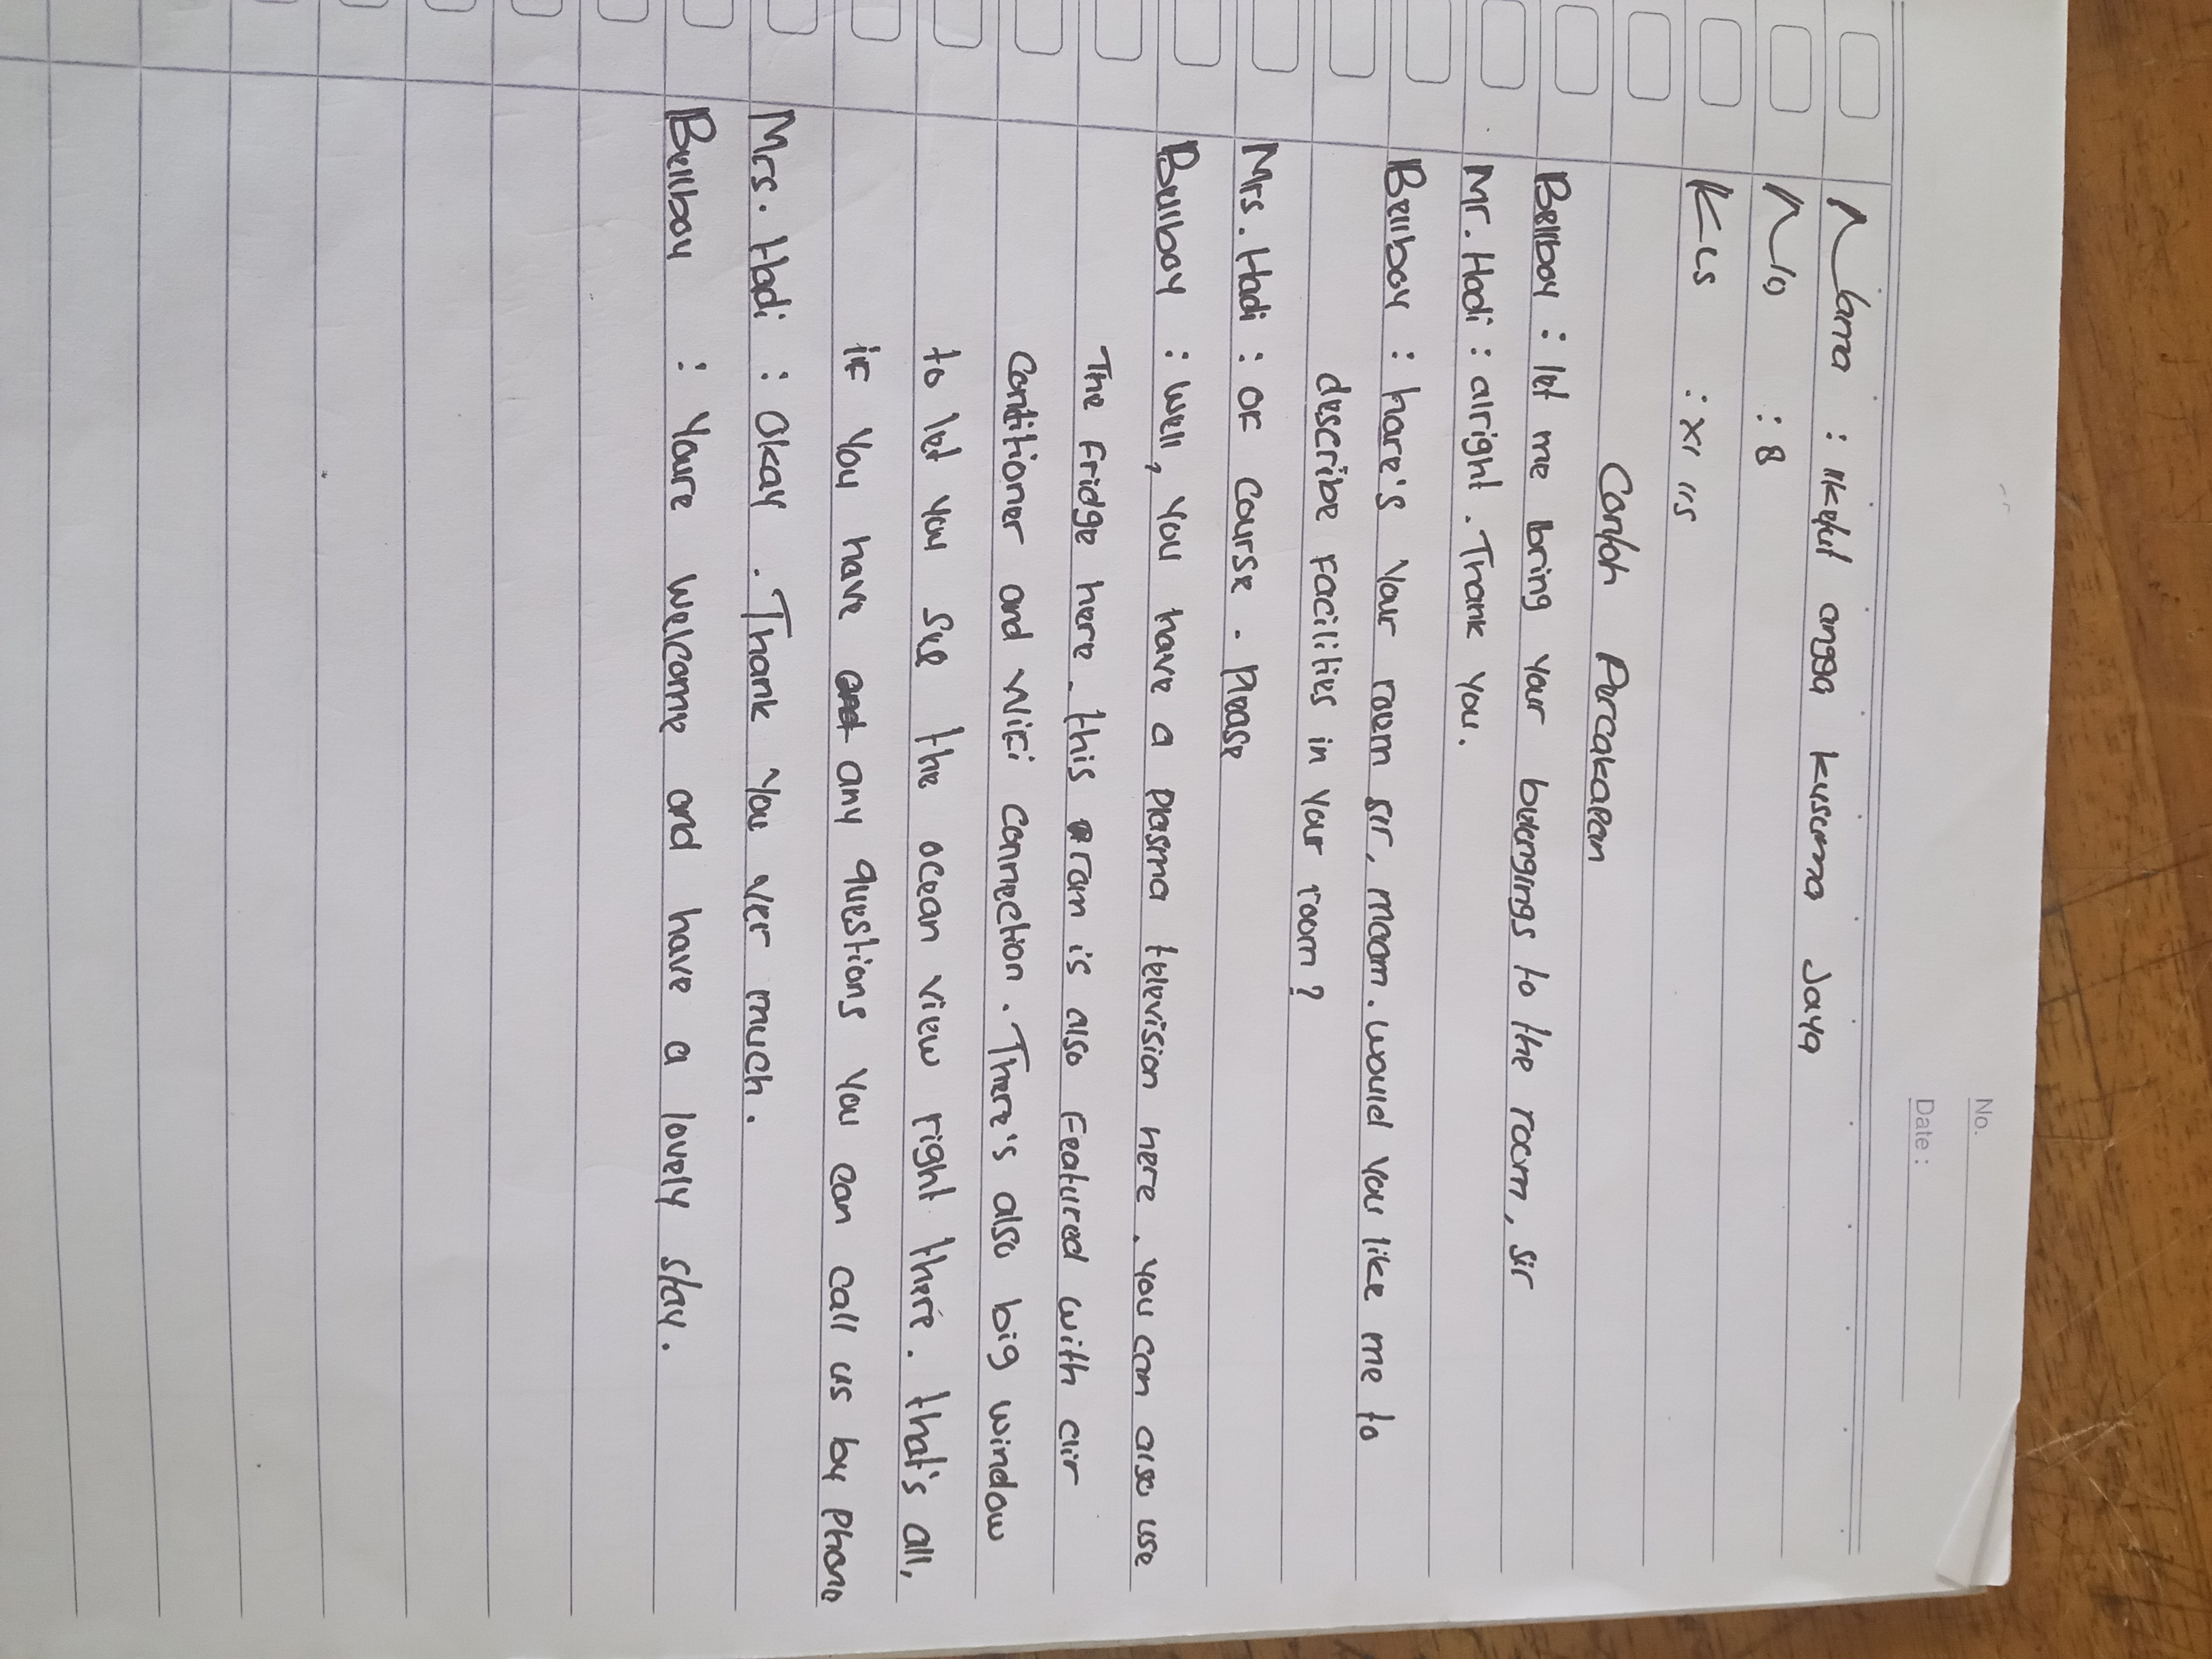 No.
Date :
Nama : iketut angga kusuma Jaya
No : 8
Kls : XI IIS
Contoh Percakapan
Bellboy : let me bring your belengings to the room, sir
Mr. Hadi : alright . Thank you.
Bellboy : hare's your room sir, maam. would you like me to
describe facilities in your room ?
Mrs. Hadi : of course . Please
Bellboy : Well, you have a plasma television here . you can also use
The fridge here . this room is also featured with air
Conditioner and WiFi connection . There's also big window
to let you see the ocean view right there . that's all,
if you have any questions you can call us by phone
Mrs. Hadi : Okay . Thank you ver much .
Bellboy : Youre welcome and have a lovely stay .